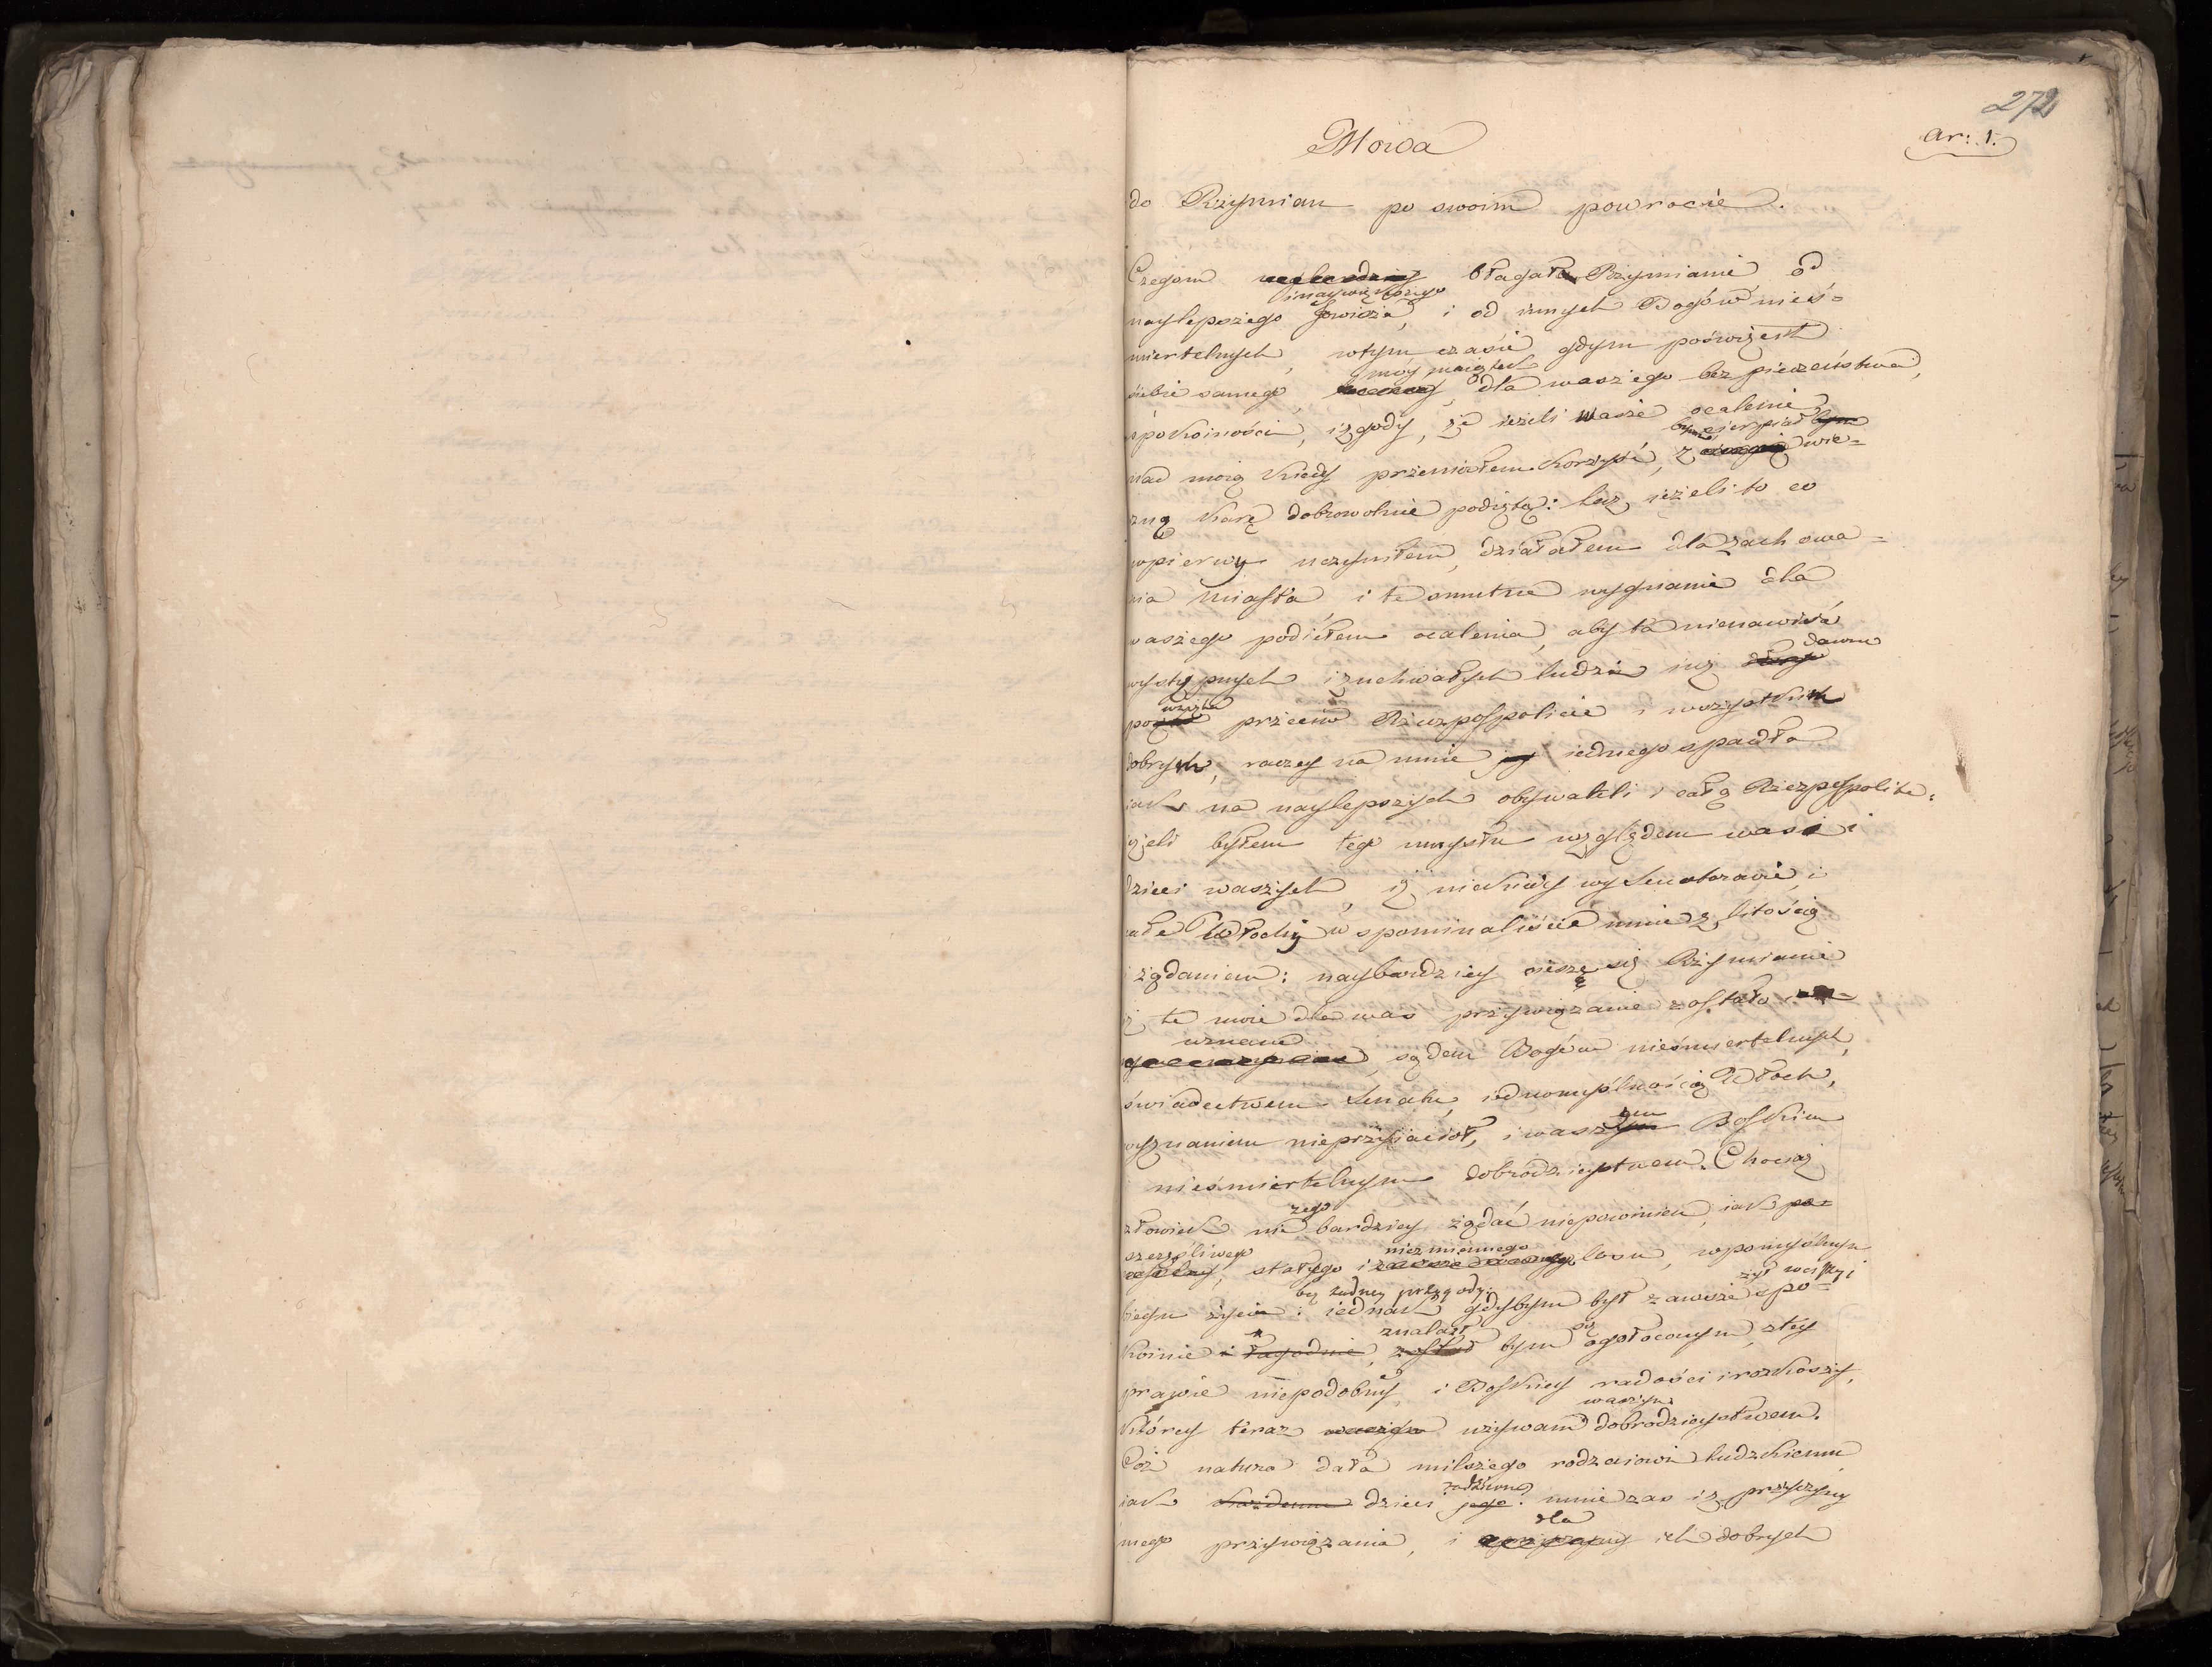 272
ar: 1.
Mowa
do Rzymian po swoim powrocie.
Czegom błagał Rzymianie od
naylepszego i naywiększego Jowisza, i od innych Bogów nieś=
miertelnych, wtym czasie gdym poświęcił
siebie samego, móy maiątek dla waszego bezpieczeństwa,
spokoiności, izgody, że ieżeli wasze ocalenie
nad moią kiedy przeniosłem korzyść, bym cierpiał wie=
zną karę dobrowolnie podiętą: lecz ieżeli to co
wpierwy uczyniłem, działałem dla zachowa=
nia Miasta i te smutne wygnanie dla
waszego podiełem ocalenia, aby ta nienawiść
występnych i zuchwałych ludzi iuż dawno
powzięta przeciw Rzeczpospolicie i wszystkich
dobrych, raczey na mnie jednego spadła
iak na naylepszych obywateli i całą Rzeczpospolite:
ieżeli byłem tego umysłu względem was i
dzieci waszych, iż niekiedy wy Senatorowie, i
całe Włochy wspominaliście mnie z litością
i żądaniem: naybardziey cieszę się Rzymianie
iż te moie dla was przywiązanie zostało
uznane sądem Bogów nieśmiertelnych,
świadectwem Senatu, iednomyślnością Włoch,
wyznaniem nieprzyiaciół, i waszem Boskim
nieśmiertelnym dobrodzieystwem. Chociaż
człowiek niczego bardziey żądać niepowinien, iak po=
szczęśliwego, stałego i niezmiennego losu, wpomyślnym
biegu życia bez żadney przygody: iednak gdybym był zawsze żył wciszy i spo=
koinie i łagodnie, znalazł bym się ogołoconym ztey
prawie niepodobney, i Boskiey radości irozkoszy,
którey teraz używam waszym dobrodzieystwem.
Cóż natura dała milszego rodzaiowi ludzkiemu
iak dzieci: mnie zaś iż przyczyny
mego przywiązania, i dla ich dobrych